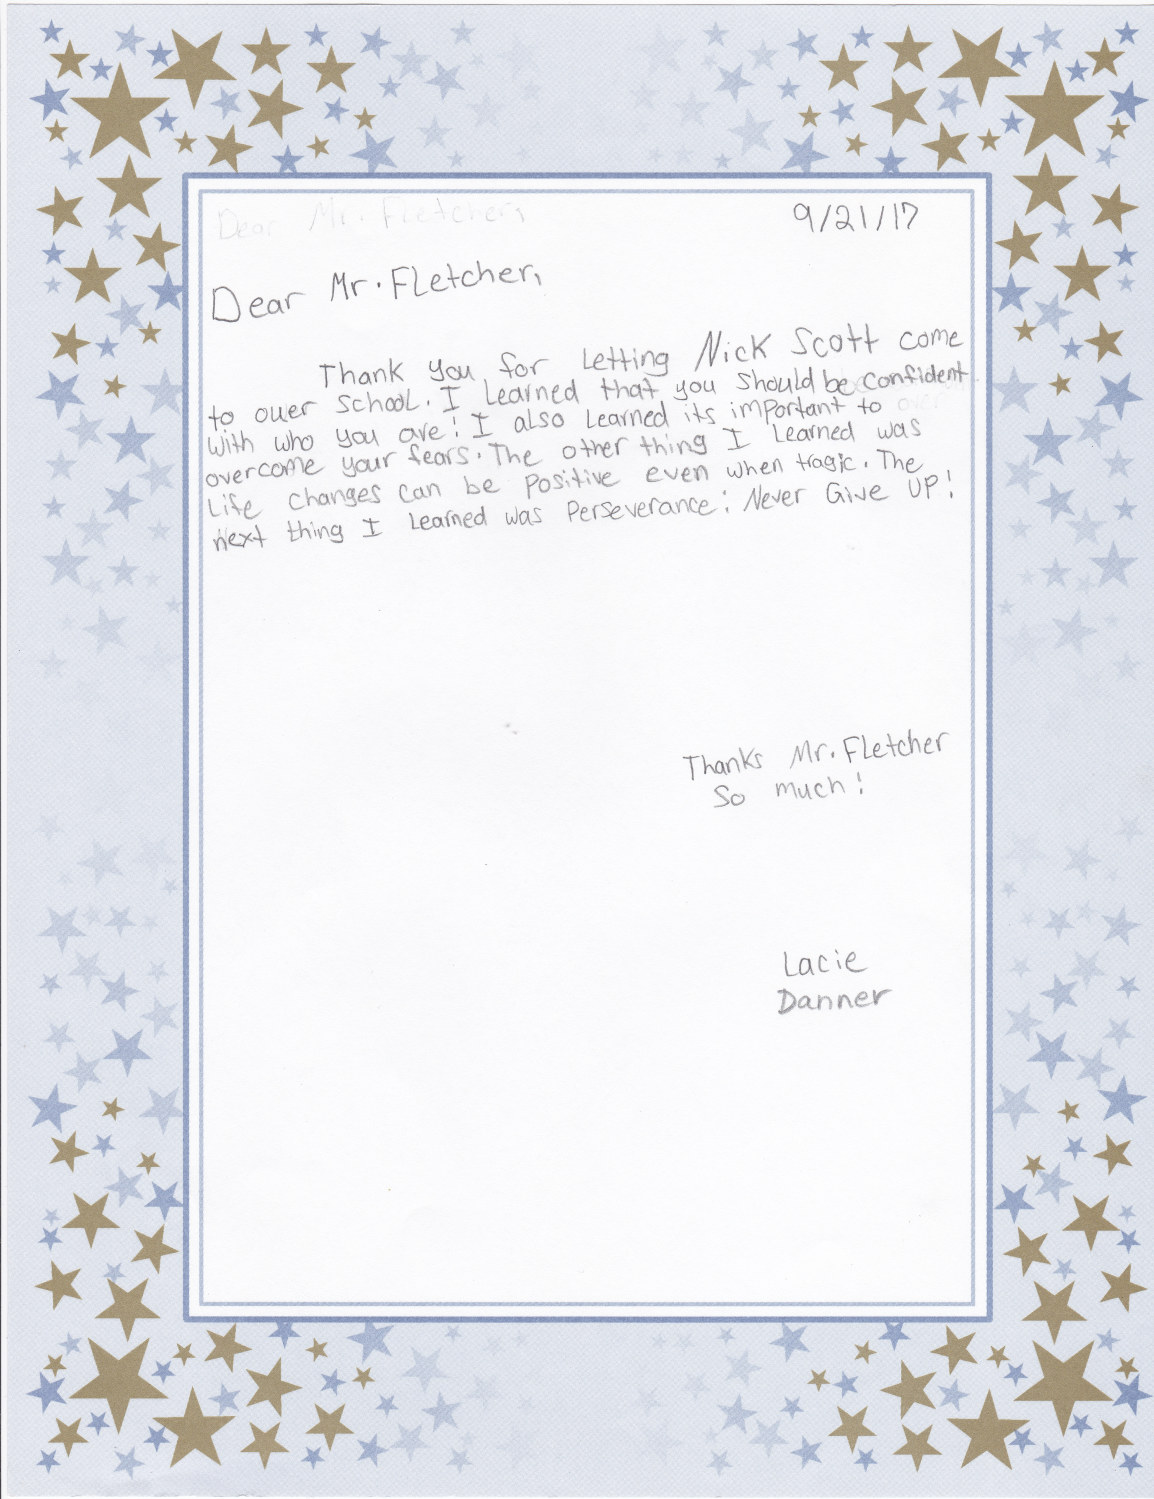 Dear Mr. Fletcher,
9/21/17
Dear Mr. Fletcher,
Thank you for Letting Nick Scott come
to ouer School. I Learned that you should be confident
with who you are! I also Learned its important to over
overcome your fears. The other thing I Learned was
Life changes can be positive even when tragic. The
next thing I Learned was Perseverance: Never Give UP!
Thanks Mr. Fletcher
So much!
Lacie
Danner